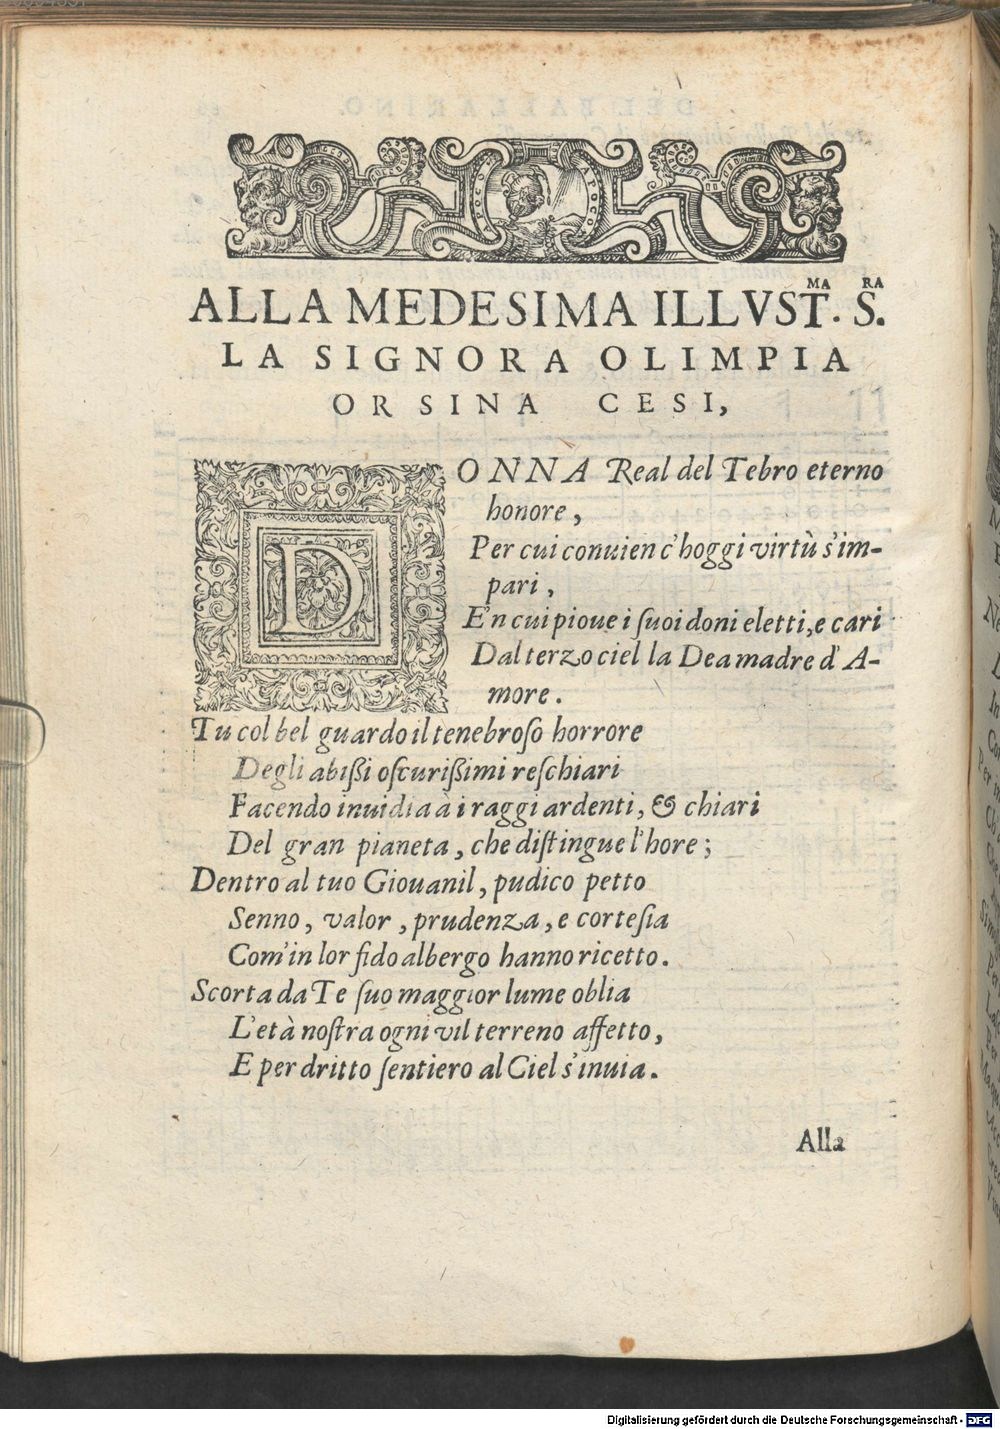 POCO APOCO
ALLA MEDESIMA ILLVST.MA S.RA
LA SIGNORA OLIMPIA
ORSINA CESI,
DONNA Real del Tebro eterno
honore,
Per cui conuien c'hoggi virtù s'im-
pari,
E'n cui pioue i suoi doni eletti, e cari
Dal terzo ciel la Dea madre d'A-
more.
Tu col bel guardo il tenebroso horrore
Degli abissi oscurissimi reschiari
Facendo inuidia à i raggi ardenti, & chiari
Del gran pianeta, che distingue l'hore;
Dentro al tuo Giouanil, pudico petto
Senno, valor, prudenza, e cortesia
Com'in lor fido albergo hanno ricetto.
Scorta da Te suo maggior lume oblia
L'età nostra ogni vil terreno affetto,
E per dritto sentiero al Ciel s'inuia.
Alla
Digitalisierung gefördert durch die Deutsche Forschungsgemeinschaft - DFG